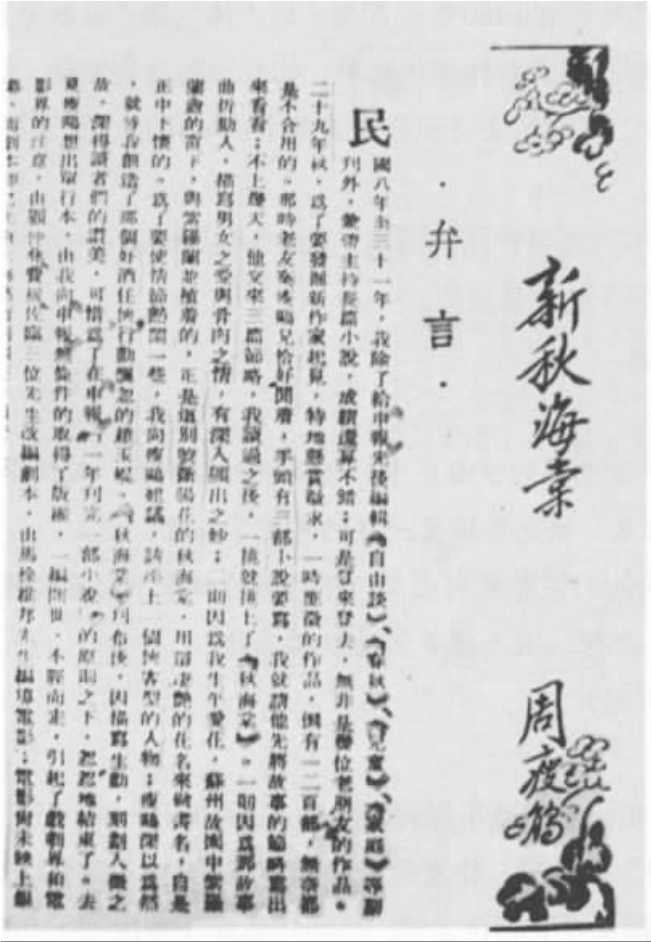 新秋海棠
周瘦鵑
·弁言·
民國八年至三十一年,我除了給申報先後編輯《自由談》、《春秋》、《兒童》、《家庭》等副
刊外,兼帶主持長篇小說,成績還算不錯;可是登來登去,無非是幾位老朋友的作品。
二十九年秋,爲了要發掘新作家起見,特地懸賞徵求,一時應徵的作品,倒有一二百部,無奈都
是不合用的。那時老友秦瘦鷗兄恰好閒着,手頭有三部小說要寫,我就請他先將故事的節略寫出
來看看;不上幾天,他交來三篇節略,我讀過之後,一挑就挑上了《秋海棠》。一則因爲那故事
曲折動人,描寫男女之愛與骨肉之情,有深入顯出之妙;二則因爲我生平愛花,蘇州故園中紫羅
蘭盦的窗下,與紫羅蘭並植着的,正是這別號斷腸花的秋海棠,用這凄艷的花名來做書名,自是
正中下懷的。爲了要使情節熱鬧一些,我向瘦鷗建議,請添上一個俠客型的人物;瘦鷗深以爲然
,就替我創造了那個好酒任俠行動飄忽的趙玉崐。《秋海棠》刊布後,因描寫生動,刻劃入微之
故,深得讀者們的讚美,可惜爲了在申報「一年刊完一部小說」的原則之下,忽忽地結束了。去
夏瘦鷗想出單行本,由我向申報無條件的取得了版權,一編問世,不脛而走,引起了戲劇界和電
影界的注意,由顧仲彝費穆佐臨三位先生改編劇本,由馬徐維邦先生編導電影;電影尚未映上銀